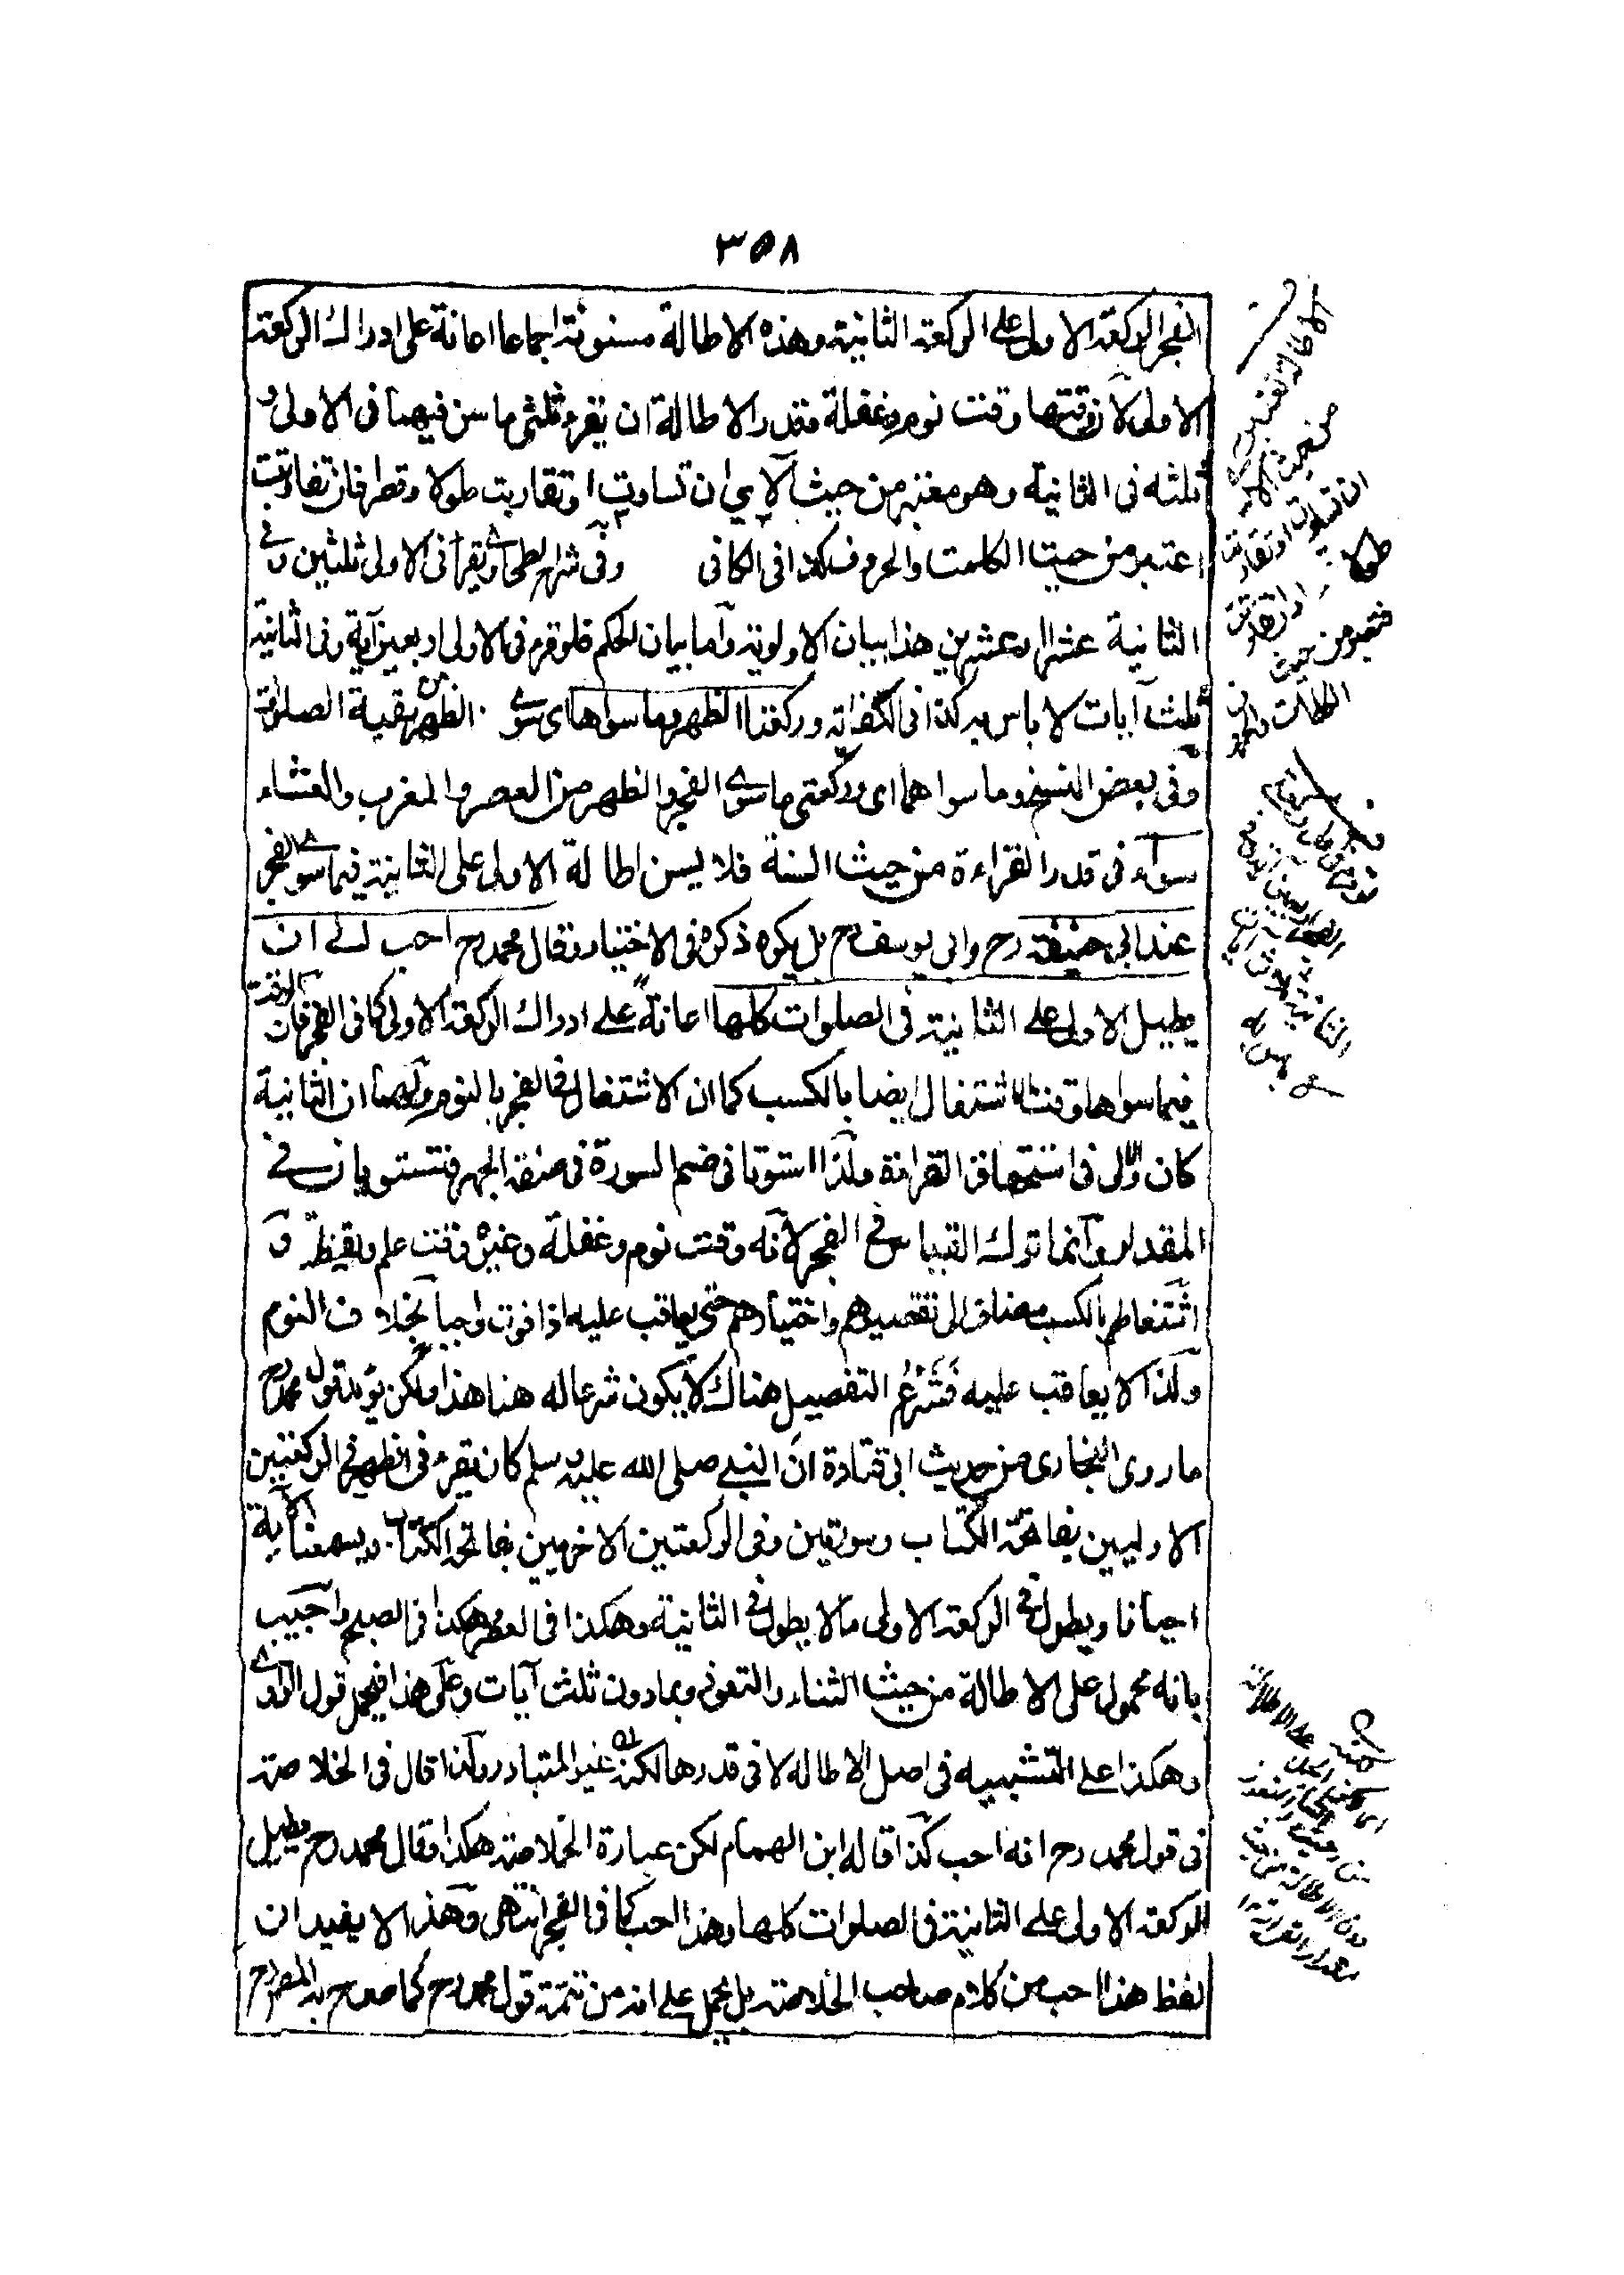 ٣٥٨
الفجر الركعة الاولى على الركعة الثانية وهذه الاطالة مسنونة اجماعا اعانة على ادراك الركعة
الاولى لان وقتها وقت نوم وغفلة فقدر الاطالة ان يقرء ثلثى ما سن فيهما فى الاولى و
ثلثه فى الثانية وهو معتبر من حيث الآي ان تساوت او تقاربت طولا وقصرا فان تفاوتت
اعتبر من حيث الكلمت والحروف كذا فى الكافى وفى شرح الطحاوى يقرأ فى الاولى ثلثين وفى
الثانية عشرا او عشرين هذا بيان الاولوية وأما بيان الحكم فلو قرء فى الاولى اربعين آية وفى الثانية
ثلث آيات لا باس به كذا فى الكفاية وركعتا الظهر وما سواها اى سوى الظهر من بقية الصلوات
وفى بعض النسخ وما سواهما اى وركعتى ما سوى الفجر والظهر من العصر والمغرب والعشاء
سواء فى قدر القراءة من حيث السنة فلا يسن اطالة الاولى على الثانية فيما سوى الفجر
عند ابى حنيفة رح وابى يوسف رح بل يكره ذكره فى الاختيار وقال محمد رح احب الى ان
يطيل الاولى على الثانية فى الصلوات كلها اعانة على ادراك الركعة الاولى كما فى الفجر فان الوقت
فيما سواها وقت اشتغال ايضا بالكسب كما ان الاشتغال فى الفجر بالنوم ولهما ان الثانية
كالاولى فى استحقاق القراءة ولذا استوتا فى ضم السورة فى صفة الجهر فتستويان فى
المقدار وانما ترك القياس فى الفجر لانه وقت نوم وغفلة وغيره وقت علم ويقظة و
اشتغالهم بالكسب مضاف الى تقصيرهم واختيارهم حتى يعاقب عليه اذا فوت واجبا بخلاف النوم
ولذا لا يعاقب عليه فشرع التفصيل هناك لا يكون شرعا له هنا هذا ولكن يؤيد قول محمد رح
ما روى البخارى من حديث ابى قتادة ان النبى صلى الله عليه وسلم كان يقرء فى الظهر فى الركعتين
الاوليين بفاتحة الكتاب وسورتين وفى الركعتين الاخريين بفاتحة الكتاب ويسمعنا الآية
احيانا ويطول فى الركعة الاولى ما لا يطول فى الثانية وهكذا فى العصر وهكذا فى الصبح واجيب
بانه محمول على الاطالة من حيث الثناء والتعوذ وبما دون ثلث آيات وعلى هذا فيحمل قول الراوى
وهكذا على التشبيه فى اصل الاطالة لا فى قدرها لكنه غير المتبادر ولذا قال فى الخلاصة
فى قول محمد رح انه احب كذا قاله ابن الهمام لكن عبارة الخلاصة هكذا وقال محمد رح يطيل
الركعة الاولى على الثانية فى الصلوات كلها وهذا احب كما فى الفجر انتهى وهذا لا يفيد ان
لفظ هذا احب من كلام صاحب الخلاصة بل يحمل على انه من تتمة قول محمد رح كما صرح به المص رح
الاطالة تعتبر
من حيث الآى
ان تساوت او تقاربت
طولا
وان تفاوتت
فتعتبر من حيث
الكلمات والحروف